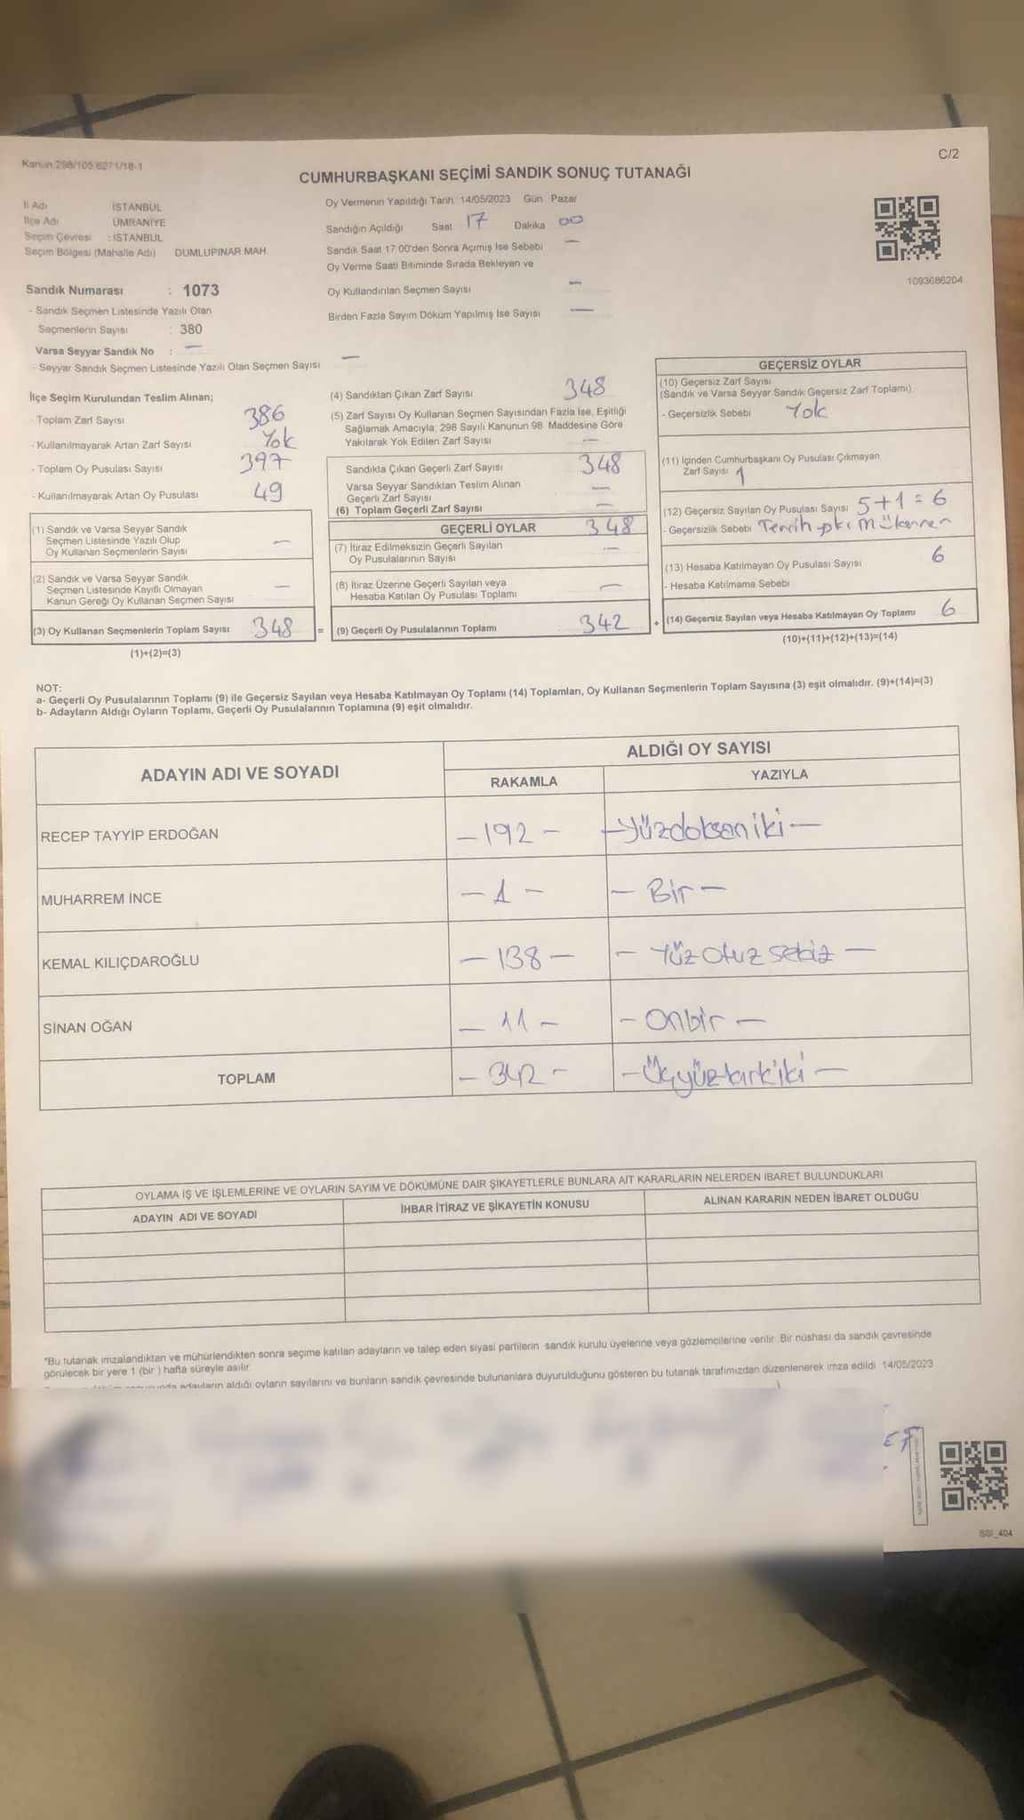 C/2
CUMHURBAŞKANI SEÇİMİ SANDIK SONUÇ TUTANAĞI
İl Adı : İSTANBUL
İlçe Adı : ÜMRANİYE
Seçim Çevresi : İSTANBUL
Seçim Bölgesi (Mahalle Adı) DUMLUPINAR MAH.
Sandık Numarası : 1073
- Sandık Seçmen Listesinde Yazılı Olan
Seçmenlerin Sayısı : 380
Varsa Seyyar Sandık No : —
- Seyyar Sandık Seçmen Listesinde Yazılı Olan Seçmen Sayısı —
Oy Vermenin Yapıldığı Tarih: 14/05/2023 Gün: Pazar
Sandığın Açıldığı Saat 17 Dakika 00
Sandık Saat 17:00'den Sonra Açımış İse Sebebi —
Oy Verme Saati Bitiminde Sırada Bekleyen ve
Oy Kullandırılan Seçmen Sayısı —
Birden Fazla Sayım Döküm Yapılmış İse Sayısı —
1093686204
İlçe Seçim Kurulundan Teslim Alınan;
- Toplam Zarf Sayısı 386
- Kullanılmayarak Artan Zarf Sayısı Yok
- Toplam Oy Pusulası Sayısı 397
- Kullanılmayarak Artan Oy Pusulası 49
(1) Sandık ve Varsa Seyyar Sandık
Seçmen Listesinde Yazılı Olup
Oy Kullanan Seçmenlerin Sayısı —
(2) Sandık ve Varsa Seyyar Sandık
Seçmen Listesinde Kayıtlı Olmayan
Kanun Gereği Oy Kullanan Seçmen Sayısı —
(3) Oy Kullanan Seçmenlerin Toplam Sayısı 348
(1)+(2)=(3)
(4) Sandıktan Çıkan Zarf Sayısı 348
(5) Zarf Sayısı Oy Kullanan Seçmen Sayısından Fazla İse, Eşitliği
Sağlamak Amacıyla, 298 Sayılı Kanunun 98. Maddesine Göre
Yakılarak Yok Edilen Zarf Sayısı —
Sandıkta Çıkan Geçerli Zarf Sayısı 348
Varsa Seyyar Sandıktan Teslim Alınan
Geçerli Zarf Sayısı —
(6) Toplam Geçerli Zarf Sayısı —
GEÇERLİ OYLAR 348
(7) İtiraz Edilmeksizin Geçerli Sayılan
Oy Pusulalarının Sayısı —
(8) İtiraz Üzerine Geçerli Sayılan veya
Hesaba Katılan Oy Pusulası Toplamı —
= (9) Geçerli Oy Pusulalarının Toplamı 342
GEÇERSİZ OYLAR
(10) Geçersiz Zarf Sayısı
(Sandık ve Varsa Seyyar Sandık Geçersiz Zarf Toplamı)
- Geçersizlik Sebebi Yok
(11) İçinden Cumhurbaşkanı Oy Pusulası Çıkmayan
Zarf Sayısı 1
(12) Geçersiz Sayılan Oy Pusulası Sayısı 5+1=6
- Geçersizlik Sebebi Tercih
(13) Hesaba Katılmayan Oy Pusulası Sayısı 6
- Hesaba Katılmama Sebebi
+ (14) Geçersiz Sayılan veya Hesaba Katılmayan Oy Toplamı 6
(10)+(11)+(12)+(13)=(14)
NOT:
a- Geçerli Oy Pusulalarının Toplamı (9) ile Geçersiz Sayılan veya Hesaba Katılmayan Oy Toplamı (14) Toplamları, Oy Kullanan Seçmenlerin Toplam Sayısına (3) eşit olmalıdır. (9)+(14)=(3)
b- Adayların Aldığı Oyların Toplamı, Geçerli Oy Pusulalarının Toplamına (9) eşit olmalıdır.
ADAYIN ADI VE SOYADI ALDIĞI OY SAYISI
RAKAMLA YAZIYLA
RECEP TAYYİP ERDOĞAN -192- -Yüzdoksaniki-
MUHARREM İNCE -1- -Bir-
KEMAL KILIÇDAROĞLU -138- -Yüz Otuz sekiz-
SİNAN OĞAN -11- -Onbir-
TOPLAM -342- -Üçyüzkırkiki-
OYLAMA İŞ VE İŞLEMLERİNE VE OYLARIN SAYIM VE DÖKÜMÜNE DAİR ŞİKAYETLERLE BUNLARA AİT KARARLARIN NELERDEN İBARET BULUNDUKLARI
ADAYIN ADI VE SOYADI İHBAR İTİRAZ VE ŞİKAYETİN KONUSU ALINAN KARARIN NEDEN İBARET OLDUĞU
*Bu tutanak imzalandıktan ve mühürlendikten sonra seçime katılan adayların ve talep eden siyasi partilerin sandık kurulu üyelerine veya gözlemcilerine verilir. Bir nüshası da sandık çevresinde
görülecek bir yere 1 (bir) hafta süreyle asılır.
adayların aldığı oyların sayılarını ve bunların sandık çevresinde bulunanlara duyurulduğunu gösteren bu tutanak tarafımızdan düzenlenerek imza edildi. 14/05/2023